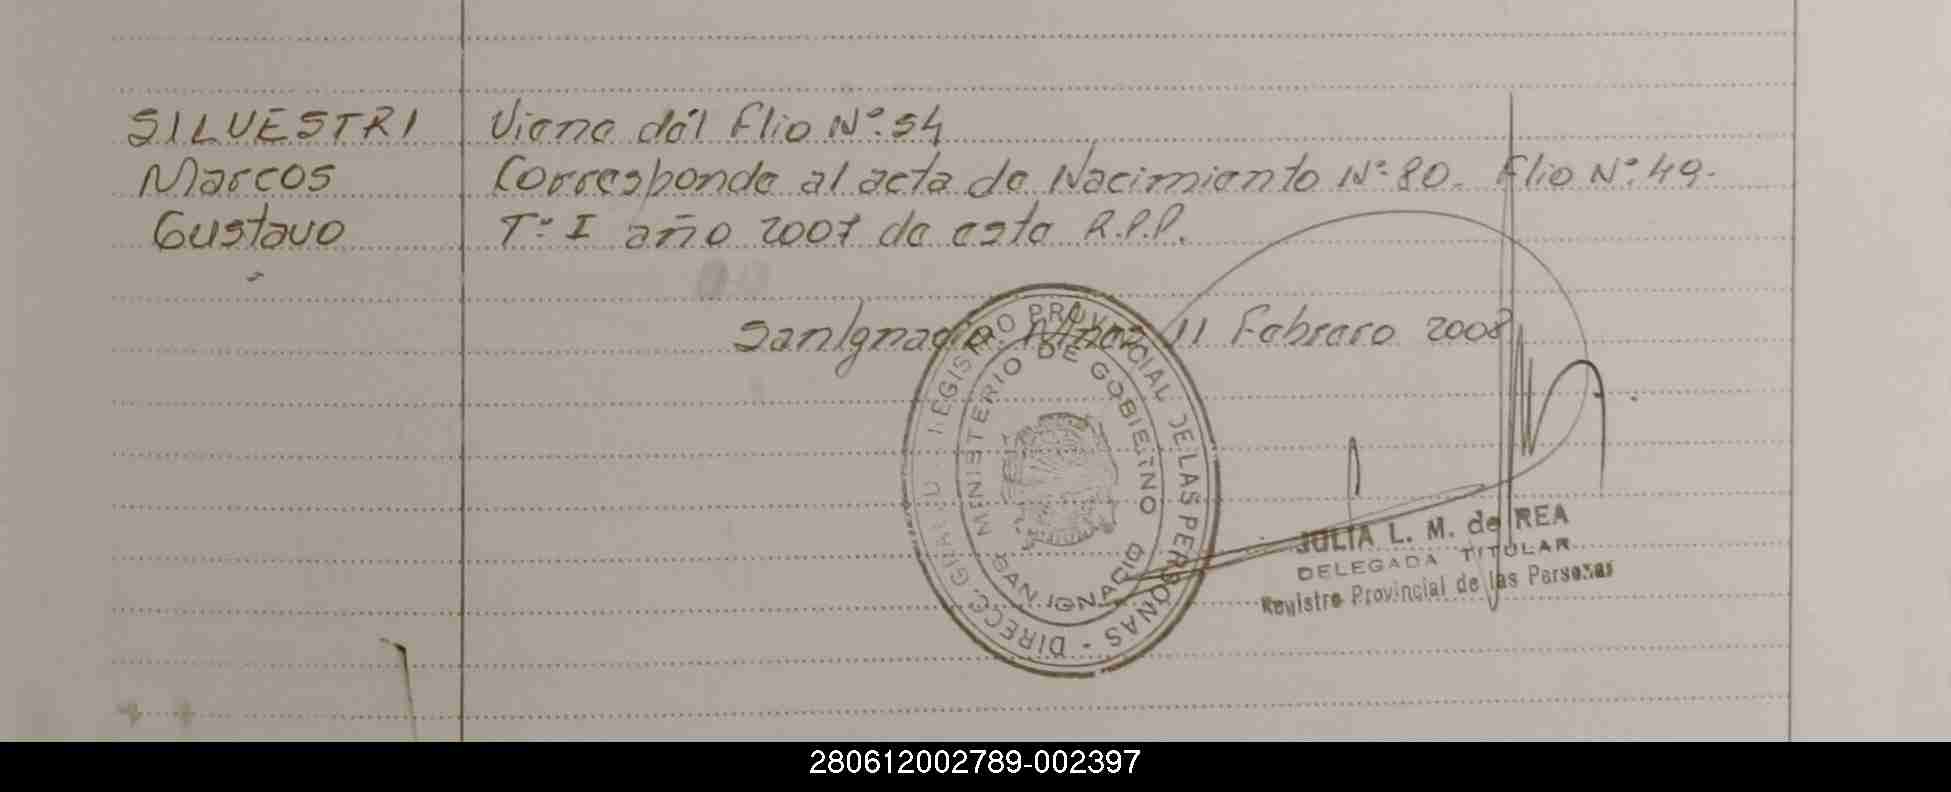 SILVESTRI
Marcos
Gustavo
Viene del Flio Nº. 54
Corresponde al acta de Nacimiento Nº 80. Flio Nº. 49.
Tº I año 2007 de este R.P.P.
San Ignacio 11 Febrero 2008
REGISTRO PROVINCIAL DE LAS PERSONAS - DIRECC. GRAL
MINISTERIO DE GOBIERNO
SAN IGNACIO
JULIA L. M. de REA
DELEGADA TITULAR
Registro Provincial de las Personas
280612002789-002397